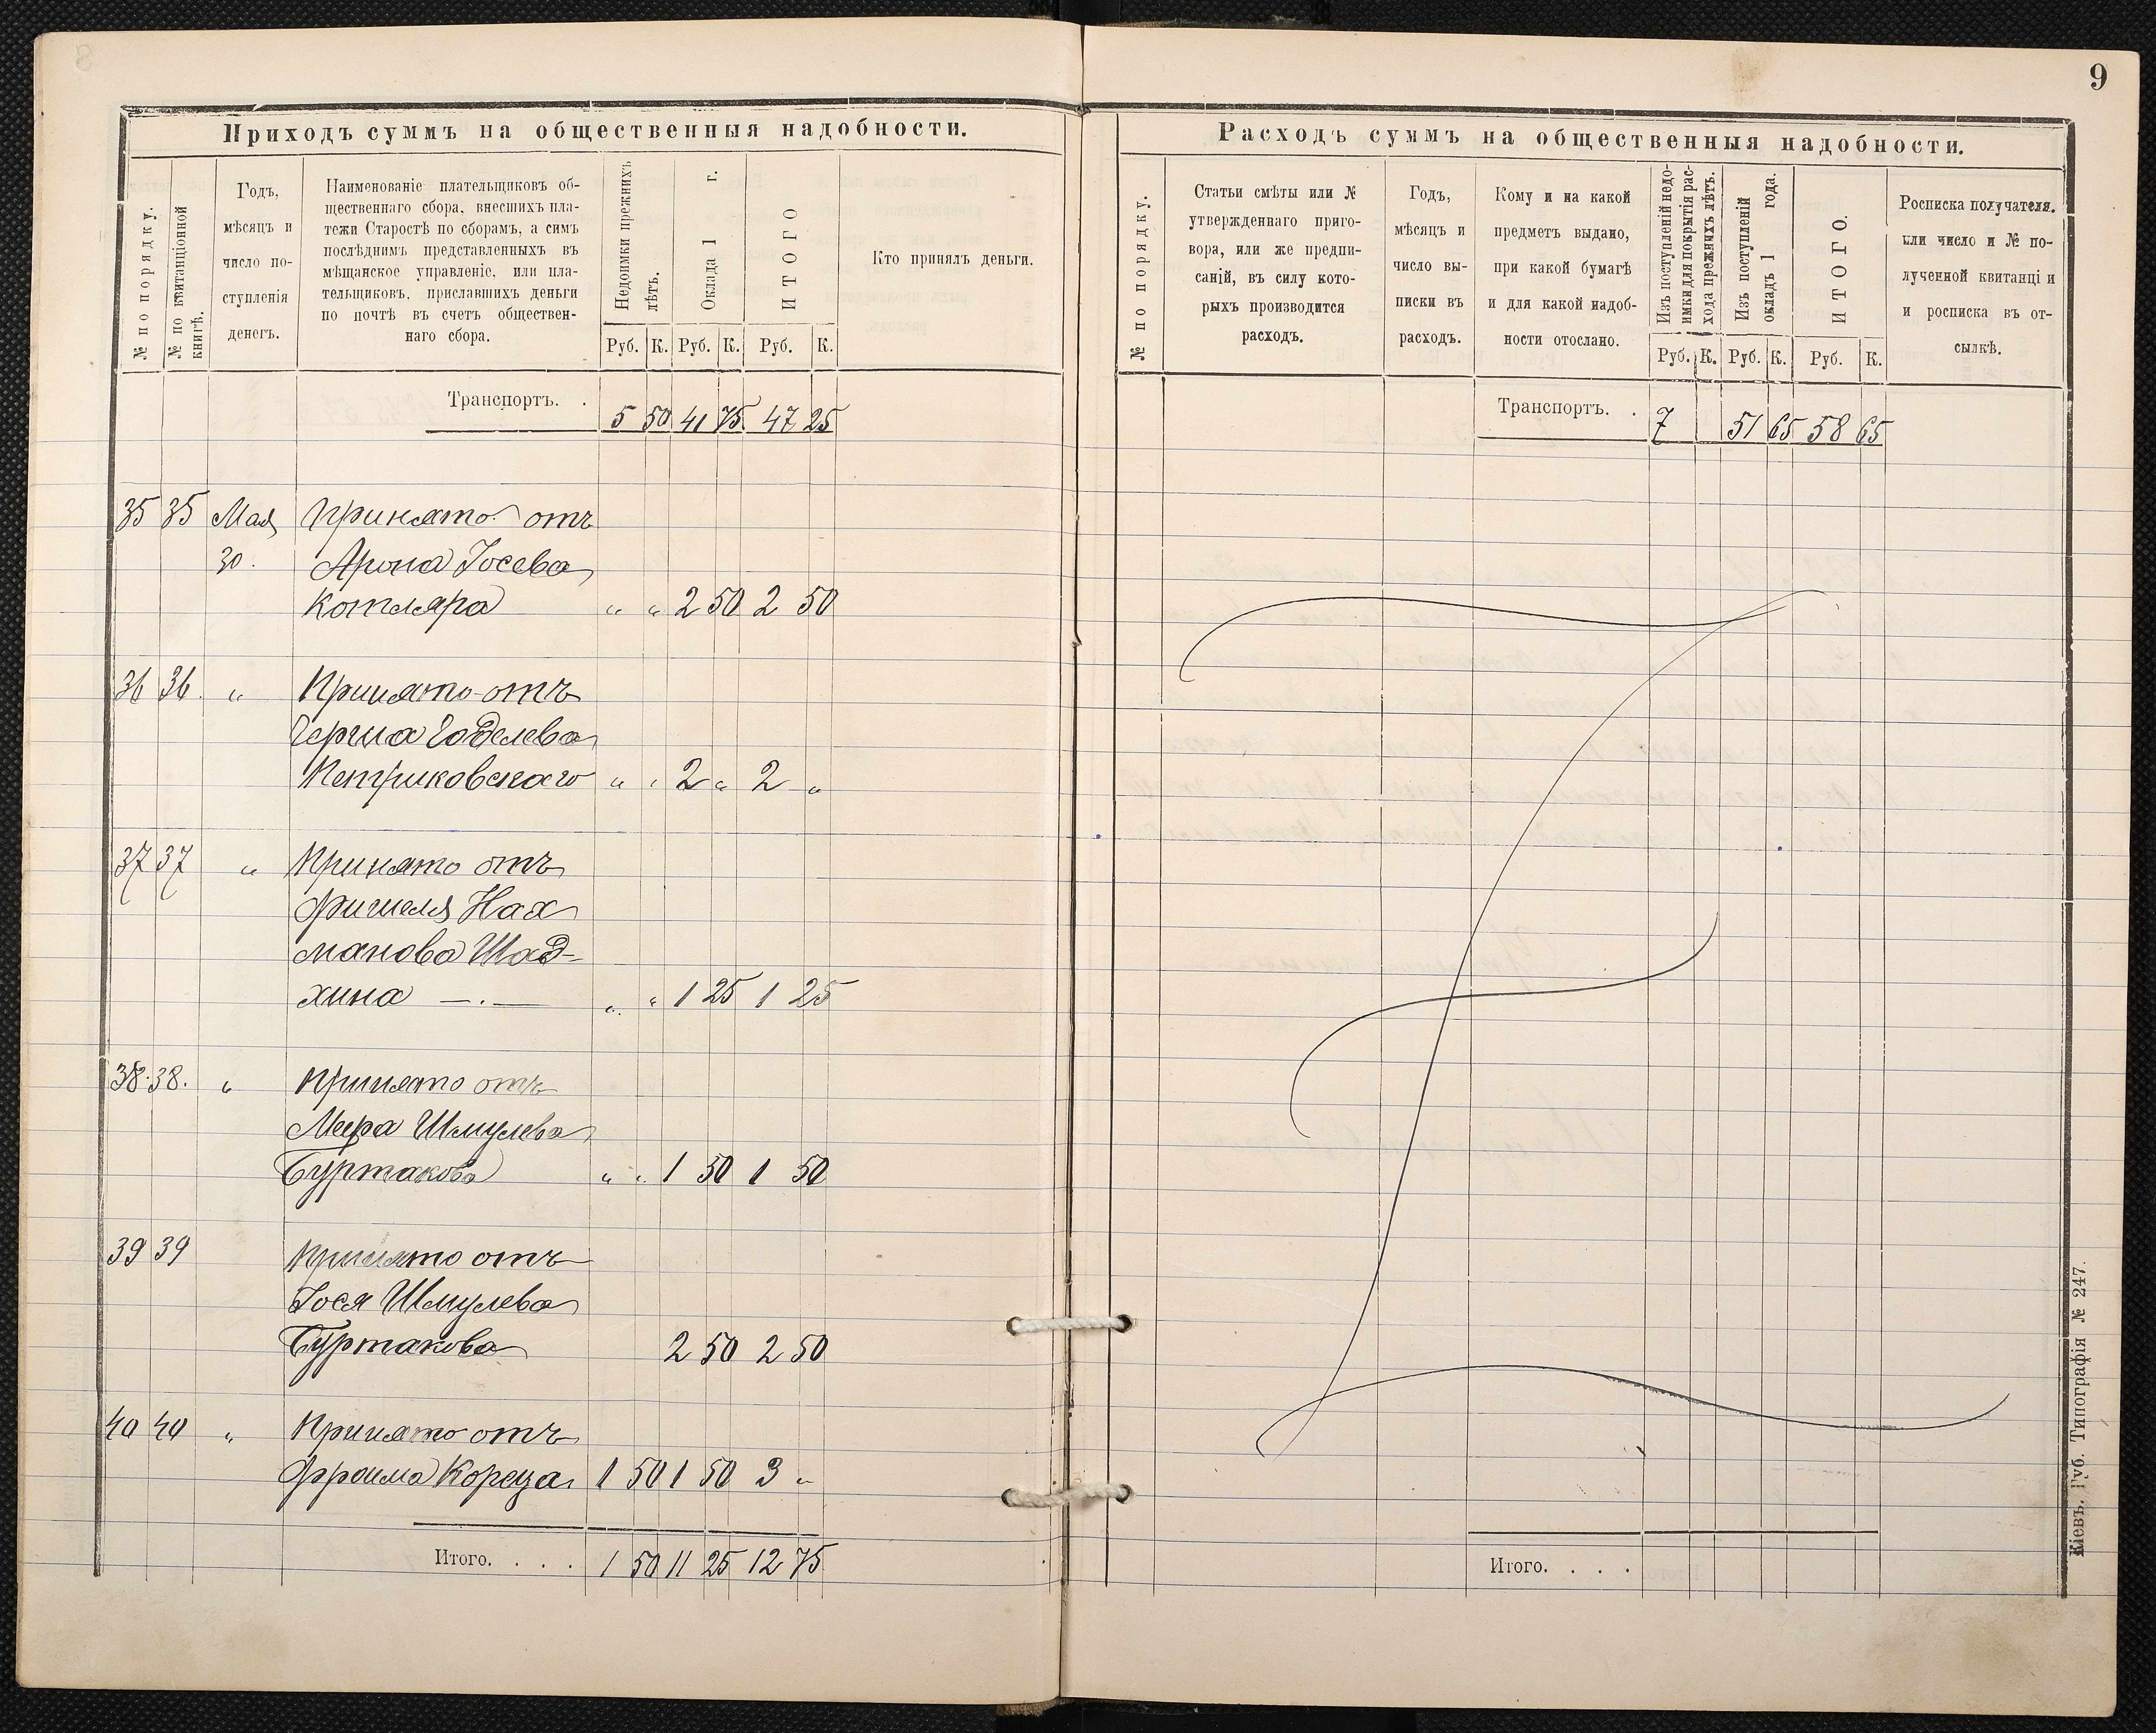 9
Приходъ суммъ на общественныя надобности.
№ по порядку.
№ по квитанціонной
книгѣ.
Годъ,
мѣсяцъ и
число по-
ступленія
денегъ.
Наименованіе плательщиковъ об-
щественнаго сбора, внесшихъ пла-
тежи Старостѣ по сборамъ, а симъ
послѣднимъ представленныхъ въ
мѣщанское управленіе, или пла-
тельщиковъ, приславшихъ деньги
по почтѣ въ счетъ обществен-
наго сбора.
Недоимки прежнихъ
лѣтъ.
Оклада 1 г.
ИТОГО
Кто принялъ деньги.
Руб. К. Руб. К. Руб. К.
Транспортъ. . 5 50 41 75 47 25
35 35 Мая Принято отъ
30. Арона Іосева
Котляра " " 2 50 2 50
36 36. " Принято отъ
Герша Годелева
Петриковскаго " " 2 " 2 "
37 37 " Принято отъ
Фишеля Нах
манова Шад-
хина —.— " " 1 25 1 25
38. 38. " Принято отъ
Меера Шмулева
Буртакова " " 1 50 1 50
39 39 Принято отъ
Іося Шмулева
Буртакова 2 50 2 50
40 40 " Принято отъ
Фроима Кореца 1 50 1 50 3 "
Итого. . . . 1 50 11 25 12 75
Расходъ суммъ на общественныя надобности.
№ по порядку.
Статьи смѣты или №
утвержденнаго приго-
вора, или же предпи-
саній, въ силу кото-
рыхъ производится
расходъ.
Годъ,
мѣсяцъ и
число вы-
писки въ
расходъ.
Кому и на какой
предметъ выдано,
при какой бумагѣ
и для какой надоб-
ности отослано.
Изъ поступленій недо-
имки для покрытія рас-
хода прежнихъ лѣтъ.
Изъ поступленій
окладъ 1 года.
ИТОГО.
Росписка получателя.
или число и № по-
лученной квитанці и
и росписка въ от-
сылкѣ.
Руб. К. Руб. К. Руб. К.
Транспортъ. . 7 51 65 58 65
Итого. . . .
Кіевъ. Губ. Типографія № 247.